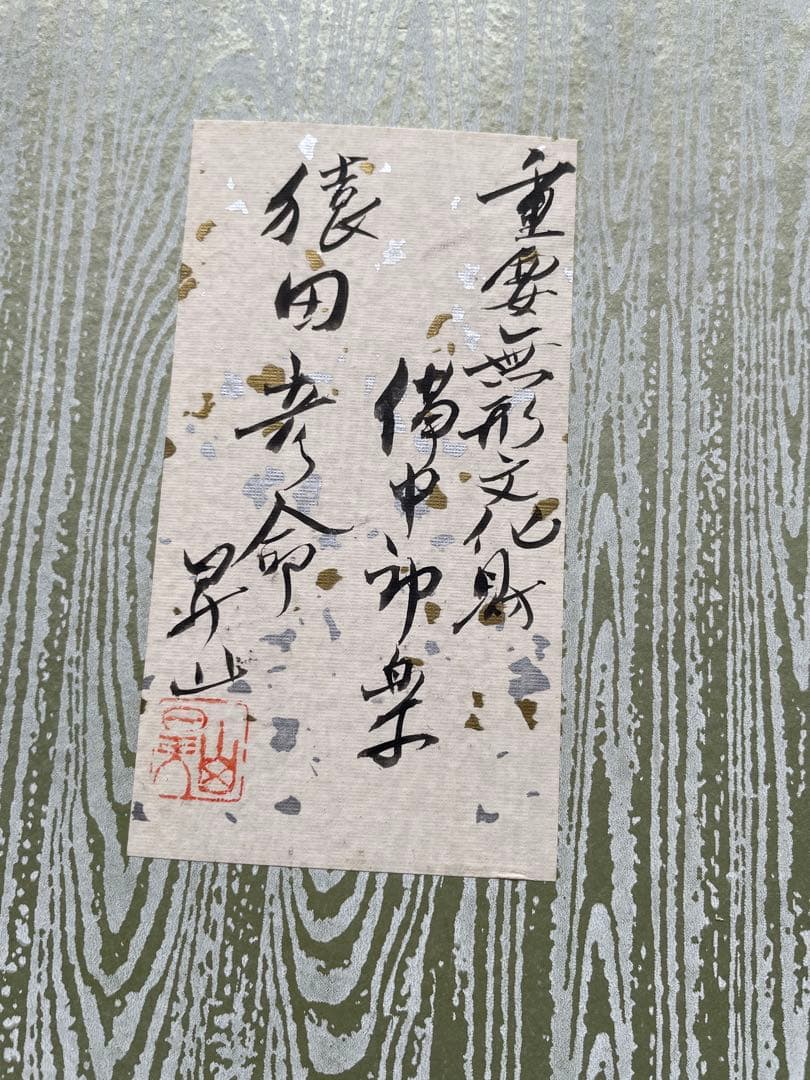 重要無形文化財
備中神楽
猿田彦命
昇山